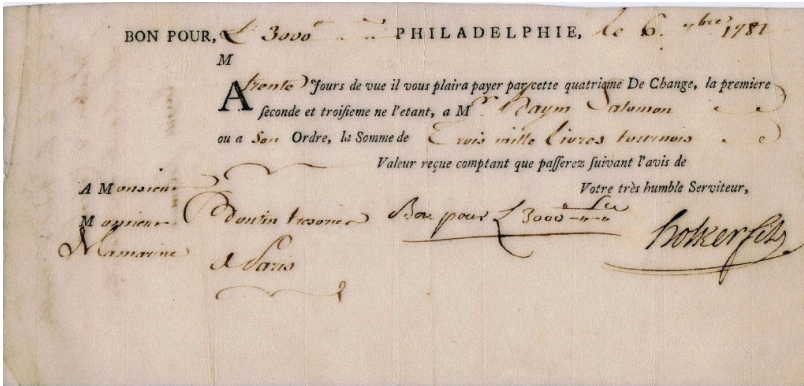 BON POUR, L 3000 PHILADELPHIE, le 6. 7bre 1781
M
A trente Jours de vue il vous plaira payer par cette quatrième De Change, la premiere
seconde et troisieme ne l'etant, a Mr. Haym Salomon
ou a son Ordre, la Somme de Trois mille livres tournois
Valeur reçue comptant que passerez suivant l'avis de
A Monsieur Votre très humble Serviteur,
Monsieur Boutin tresorier Bon pour L 3000
Lamarine a Paris holker fils